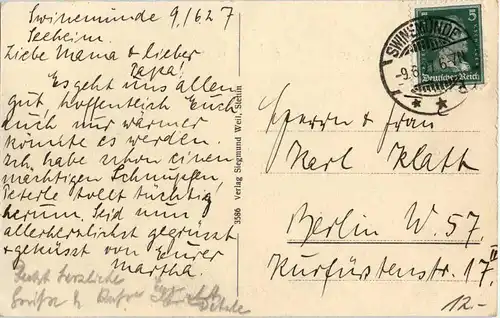 Swinemünde 9./6 27
Seeheim.
Liebe Mama & lieber
Papa!
Es geht uns allen
gut hoffentlich Euch
auch nur wärmer
könnte es werden.
Ich habe schon einen
mächtigen Schnupfen,
Peterle tollt tüchtig
herum. Seid nun
allerherzlichst gegrüsst
& geküsst von Eurer
Martha.
Recht herzliche
Grüße
3586 Verlag Siegmund Weil, Stettin
5
SWINEMÜNDE
-9.6.
Deutsches Reich
Herrn & Frau
Karl Klatt
Berlin W. 57.
Kurfürstenstr. 17 II
12.-